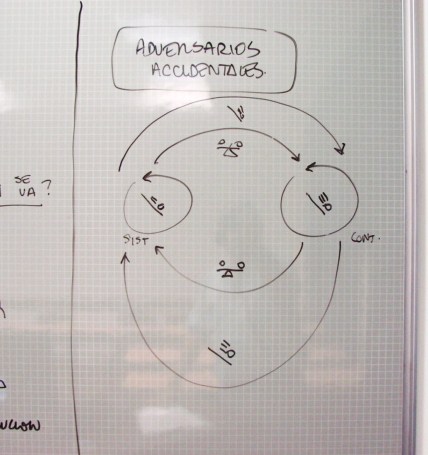 ADVERSARIOS
ACCIDENTALES.
SE
VA ?
SIST
CONT.